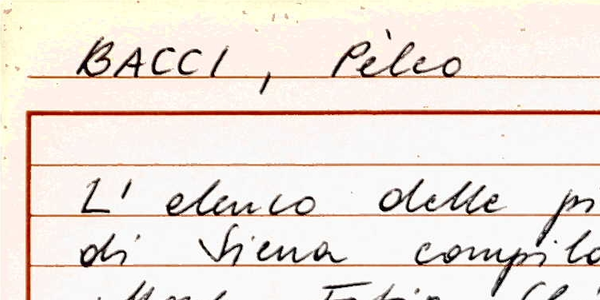 BACCI, Pèleo
L' elenco delle pi
di Siena compila